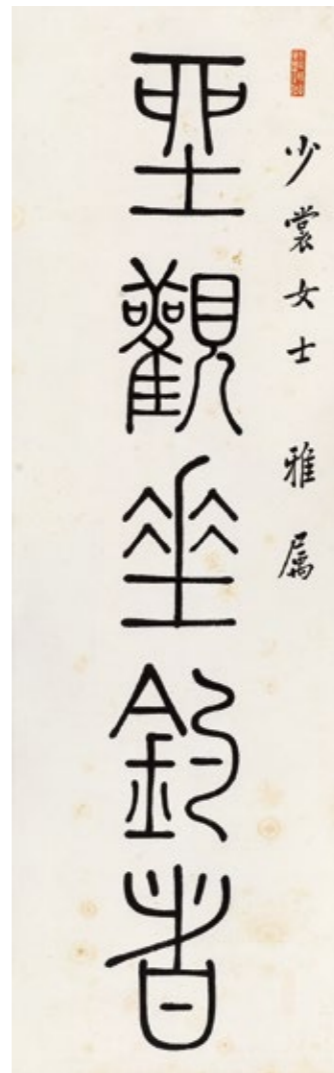 少裳女士 雅屬
坐觀垂釣者